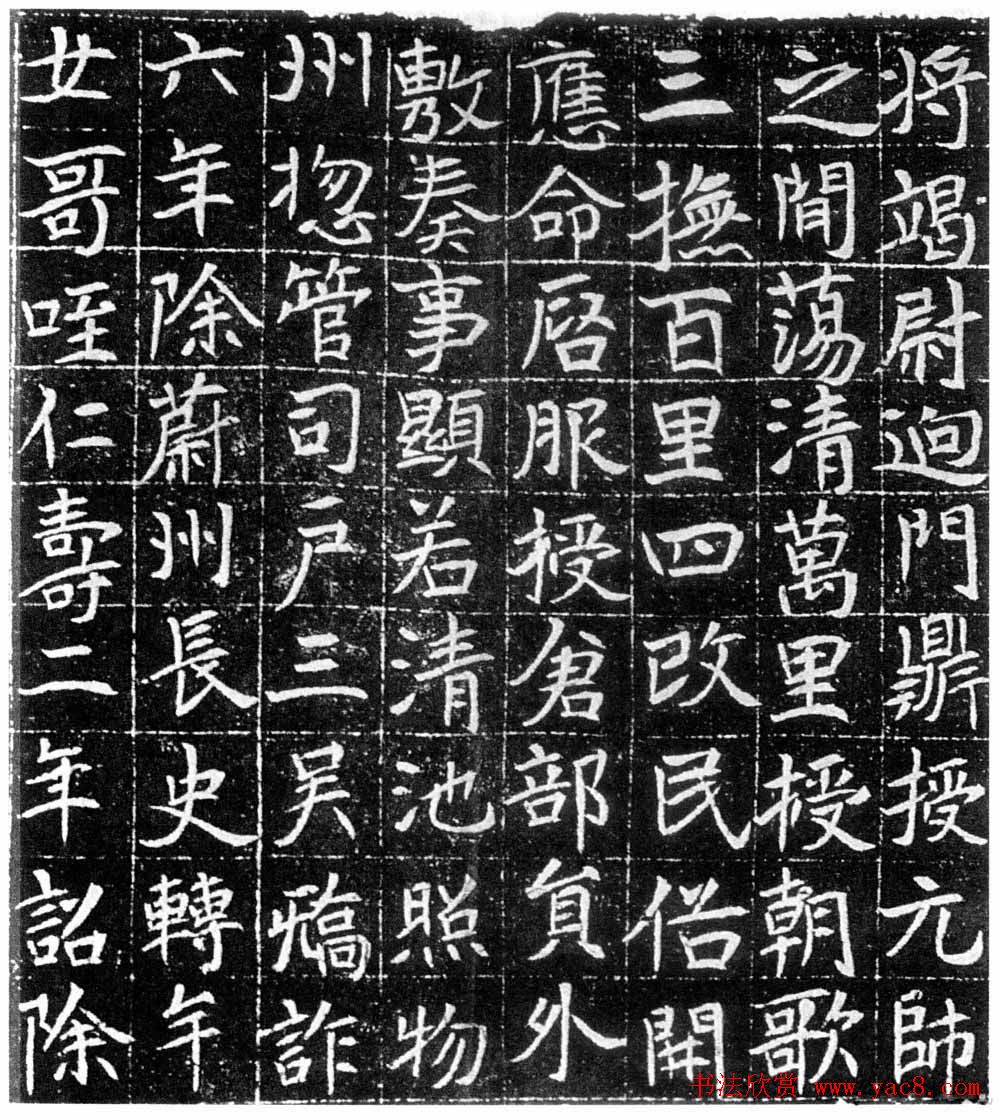 将竭尉迥門鼎授元帥
之閒蕩清萬里授朝歌
三撫百里四改民俗開
應命启服授倉部貟外
敷奏事顯若清池照物
州揔管司户三吴矯詐
六年除蔚州長史轉午
女哥咥仁壽二年詔除
书法欣赏 www.yac8.com